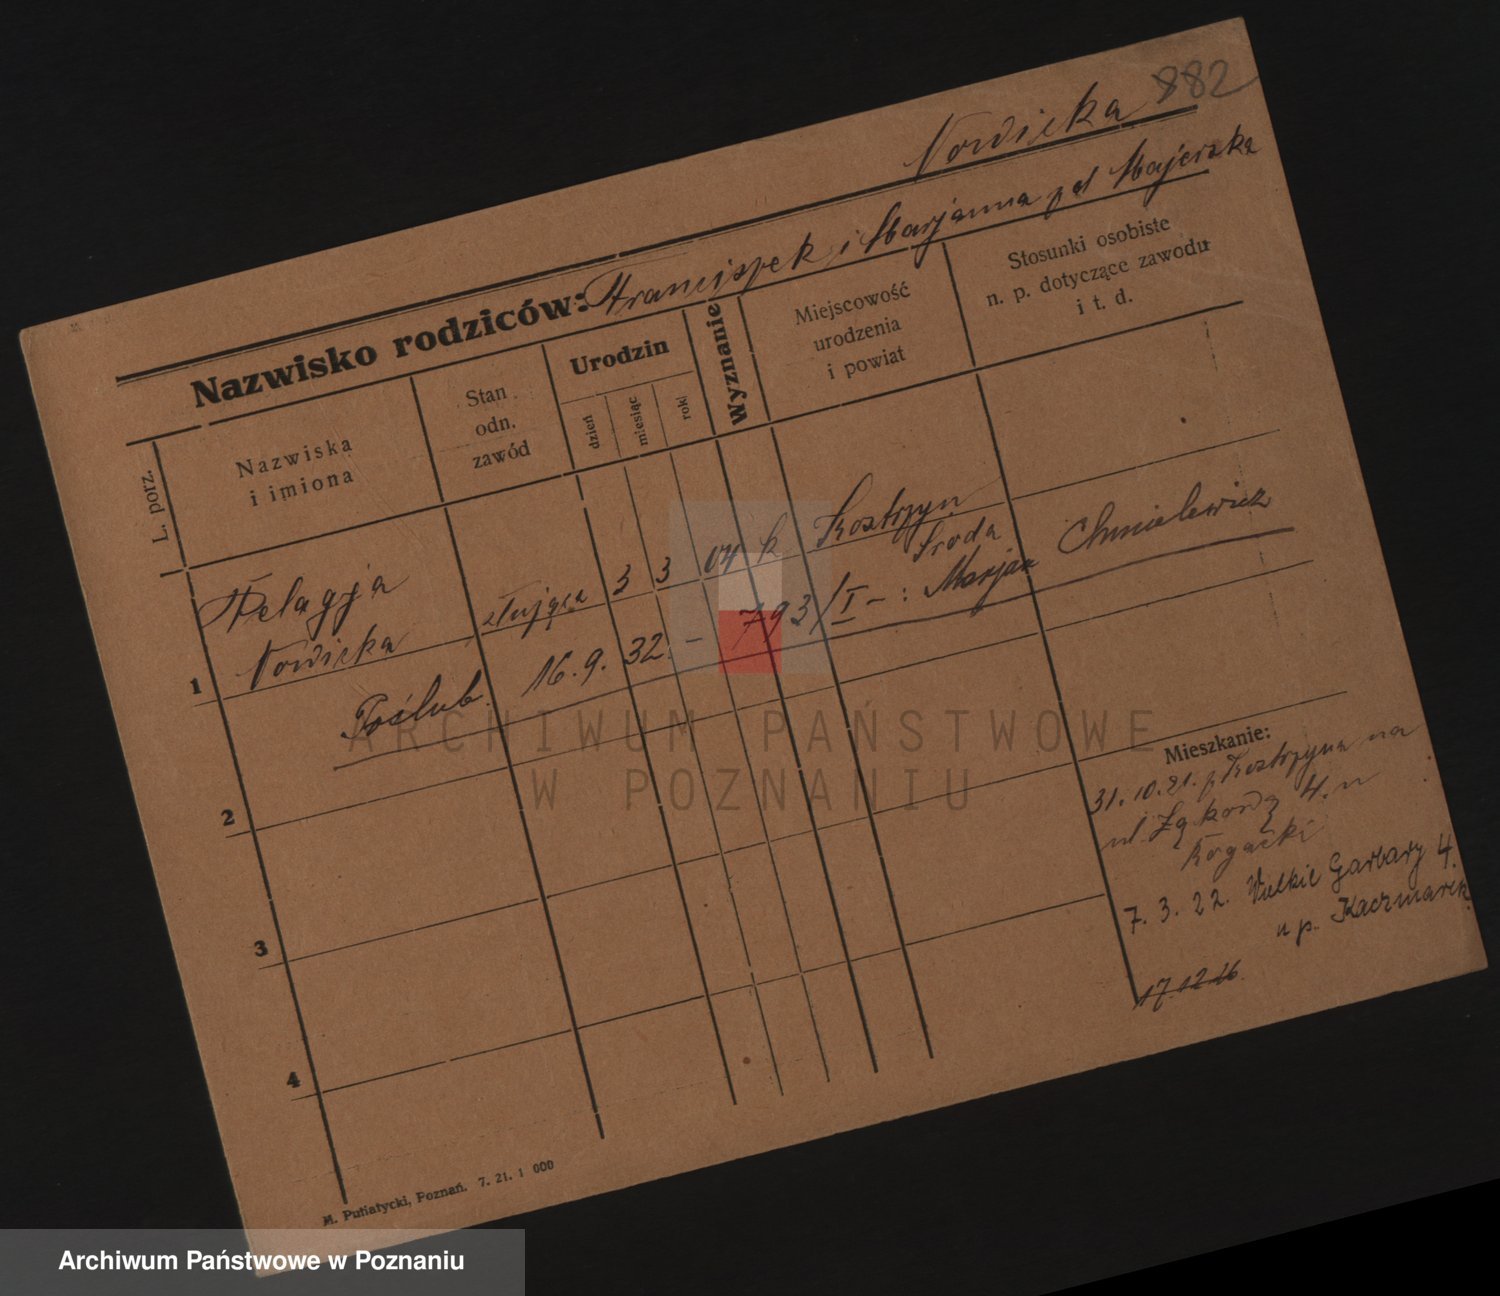 882
Nowicka
Nazwisko rodziców: Franciszek i Marjanna zd Majerska
L. porz.
Nazwiska
i imiona
Stan
odn.
zawód
Urodzin
dzień
miesiąc
rok
Wyznanie
Miejscowość
urodzenia
i powiat
Stosunki osobiste
n. p. dotyczące zawodu
i t. d.
1
Pelagja
Nowicka
służąca
3
3
04
k
Kostrzyn
Środa
Poślub. 16. 9. 32. - 793/I - : Marjan Chmielewicz
2
3
4
Mieszkanie:
31. 10. 21. z Kostrzyna na
ul Łąkową 4. u
7. 3. 22. Wielkie Garbary 4.
u p. Kaczmarek
17 12 26
M. Putiatycki, Poznań. 7. 21. 1 000
ARCHIWUM PAŃSTWOWE
W POZNANIU
Archiwum Państwowe w Poznaniu